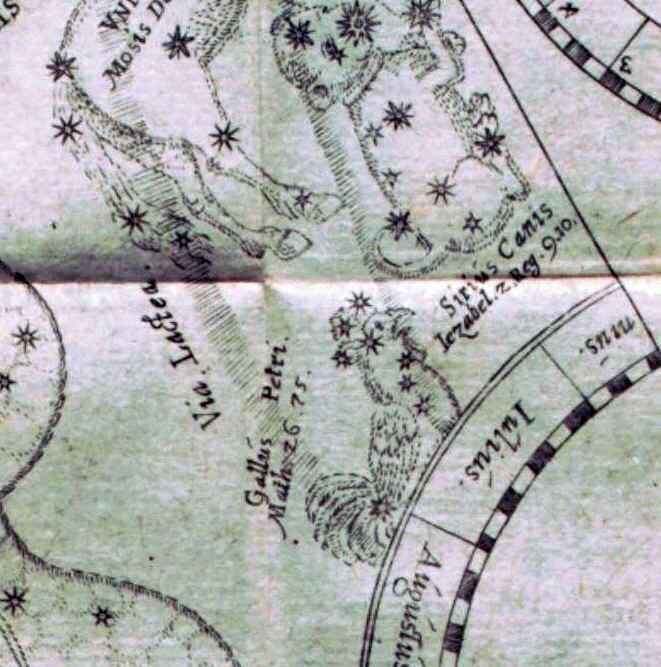 Mosis
Sirius Canis
Iezabel. 2. Reg. 9. 10.
Via. Lactea.
Gallus Petri.
Math. 26. 75.
nius.
Iulius.
Augustus
3